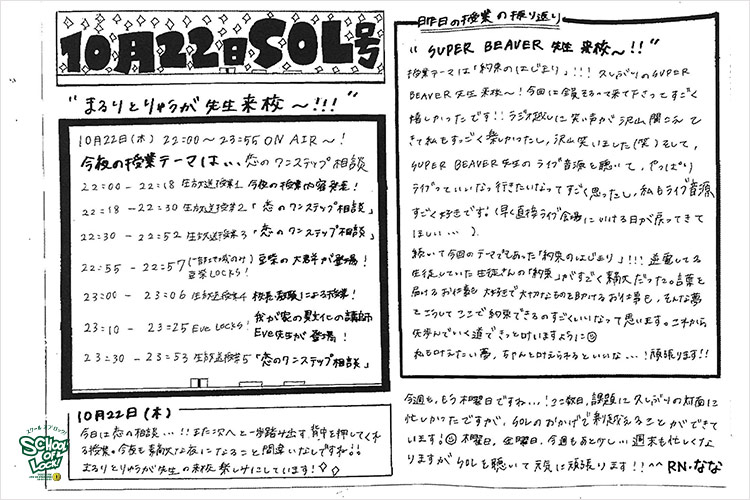 10月22日SOL号
"まるりとりゅうが先生来校〜!!!"
10月22日(木) 22:00〜23:55 ON AIR〜!
今夜の授業テーマは... 恋のワンステップ相談
22:00 - 22:18 生放送授業1 今夜の授業内容発表!
22:18 - 22:30 生放送授業2「恋のワンステップ相談」
22:30 - 22:52 生放送授業3「恋のワンステップ相談」
22:55 - 22:57 (一部地域のみ) 豆柴の大群が登場!
豆柴LOCKS!
23:00 - 23:06 生放送授業4 校長、教頭による授業!
23:10 - 23:25 EVE LOCKS! 我が家の異文化の講師
Eve先生が登場!
23:30 - 23:53 生放送授業5「恋のワンステップ相談」
10月22日(木)
今日は恋の相談...!! また次へと一歩踏み出す、背中を押してくれ
る授業。今夜も素敵な夜になること間違いなしですね!!
まるりとりゅうが先生の来校楽しみにしています!
スクールオブロック!
SCHOOL OF LOCK!
昨日の授業の振り返り
"SUPER BEAVER 先生 来校〜!!"
授業テーマは「約束のはじまり」!!! 久しぶりのSUPER
BEAVER先生来校〜! 今回は全員そろって来て下さってすごく
嬉しかったです!! ラジオ越しに笑い声が沢山聞こえ
てきて私もすっごく楽しかったし、沢山笑いました(笑) そして、
SUPER BEAVER先生のライブ音源を聴いて、やっぱり
ライブっていいなっ行きたいなってすごく思ったし、私もライブ音源
すごく好きです。(早く直接ライブ会場にいける日が戻ってきて
ほしい...)
続いて今回のテーマでもあった「約束のはじまり」!!! 逆電してる
生徒していた生徒さんの「約束」がすごく素敵だった。言葉を
届けるお仕事も 大好きで大切なものを助けるお仕事も、そんな夢
をこうしてここで約束できるのすごくいいなって思います。これから
先歩んでいく道できっと叶いますように
私も叶えたい夢、ちゃんと叶えられるといいな...! 頑張ります!!
今週も、もう木曜日ですね...! ここ数日、課題に久しぶりの対面に
忙しかったですが、SOLのおかげで乗り越えることができて
います! 木曜日、金曜日、今週もあと少し... 週末も忙しくな
りますが SOLを聴いて元気に頑張ります!! ^^ RN.なな